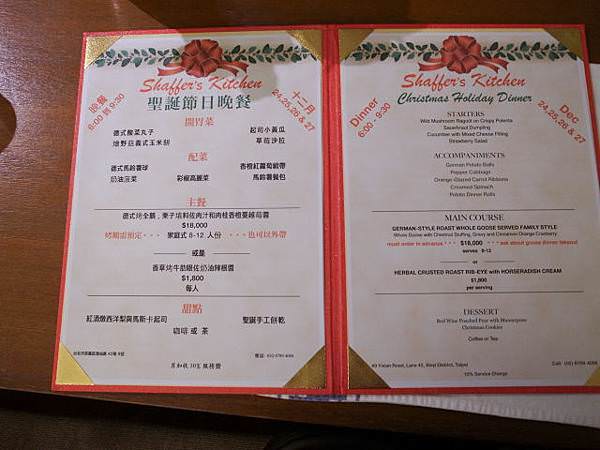 Shaffer's Kitchen
聖誕節日晚餐
晚餐
6:00 到 9:30
十二月
24,25,26 & 27
開胃菜
德式酸菜丸子
起司小黃瓜
燴野菇義式玉米餅
草莓沙拉
配菜
德式馬鈴薯球
香橙紅蘿蔔緞帶
奶油菠菜
彩椒高麗菜
馬鈴薯餐包
主餐
$18,000
烤鵝需預定
家庭式 8-12 人份
也可以外帶
或是
香草烤牛肋眼佐奶油辣根醬
$1,800
每人
甜點
紅酒燉西洋梨與馬斯卡起司
聖誕手工餅乾
咖啡 或 茶
另加收 10% 服務費
Shaffer's Kitchen
Christmas Holiday Dinner
Dinner
6:00 - 9:30
Dec
24,25,26 & 27
STARTERS
Wild Mushroom Ragoût on Crispy Polenta
Sauerkraut Dumpling
Cucumber with Mixed Cheese Filling
Strawberry Salad
ACCOMPANIMENTS
German Potato Balls
Pepper Cabbage
Orange-Glazed Carrot Ribbons
Creamed Spinach
Potato Dinner Rolls
MAIN COURSE
GERMAN-STYLE ROAST WHOLE GOOSE SERVED FAMILY STYLE
Whole Goose with Chestnut Stuffing, Gravy and Cinnamon Orange Cranberry
must order in advance * * * $18,000 * * * ask about goose dinner takeout
serves 8-12
or
HERBAL CRUSTED ROAST RIB-EYE with HORSERADISH CREAM
$1,800
per serving
DESSERT
Red Wine Poached Pear with Mascarpone
Christmas Cookies
Coffee or Tea
10% Service Charge